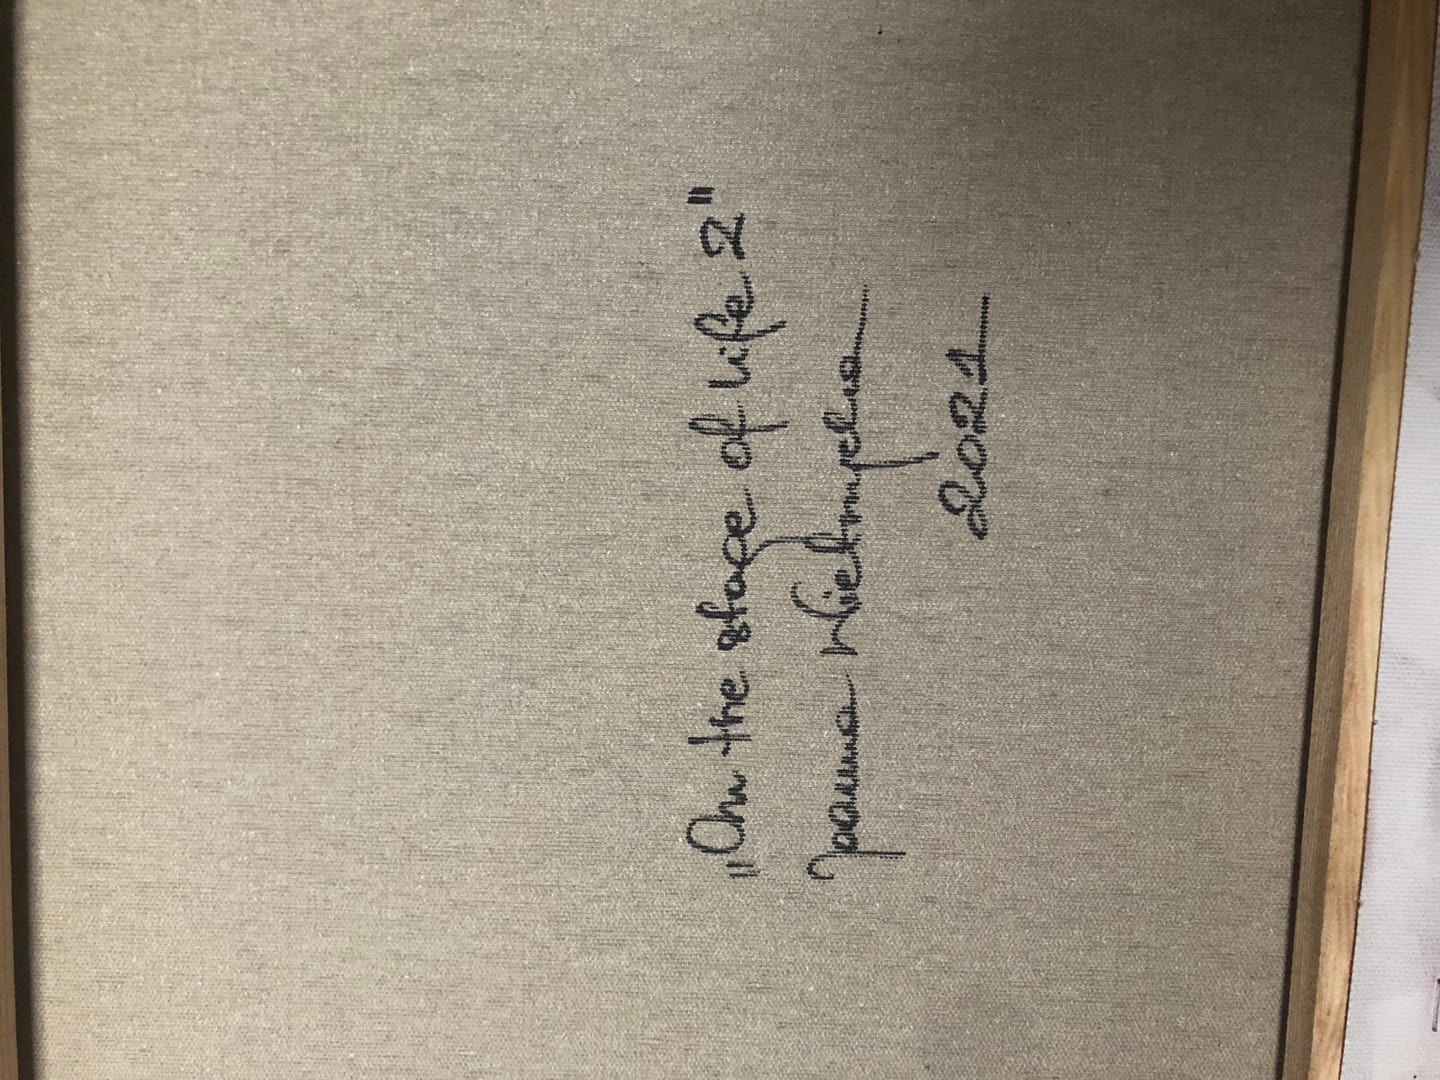 „On the stage of life 2"
Joanna
2021